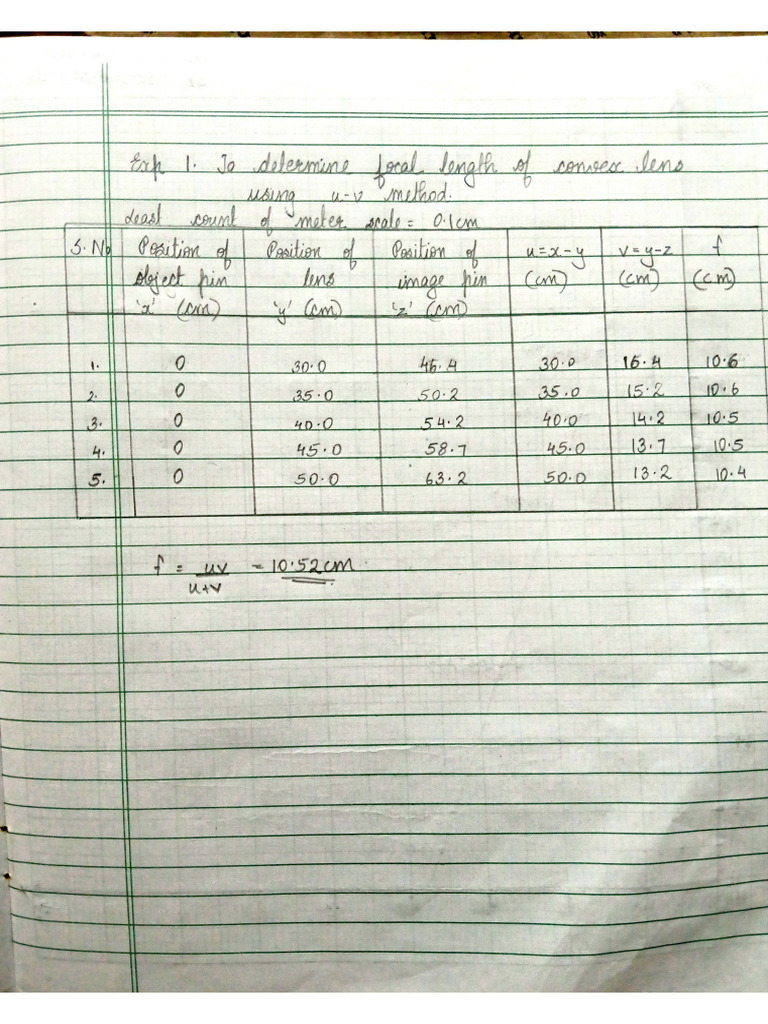 Exp 1. To determine focal length of convex lens
using u-v method.
Least count of meter scale = 0.1cm
S.No Position of object pin 'x' (cm) Position of lens 'y' (cm) Position of image pin 'z' (cm) u=x-y (cm) v=y-z (cm) f (cm)
1. 0 30.0 46.4 30.0 16.4 10.6
2. 0 35.0 50.2 35.0 15.2 10.6
3. 0 40.0 54.2 40.0 14.2 10.5
4. 0 45.0 58.7 45.0 13.7 10.5
5. 0 50.0 63.2 50.0 13.2 10.4
f = uv = 10.52cm
u+v